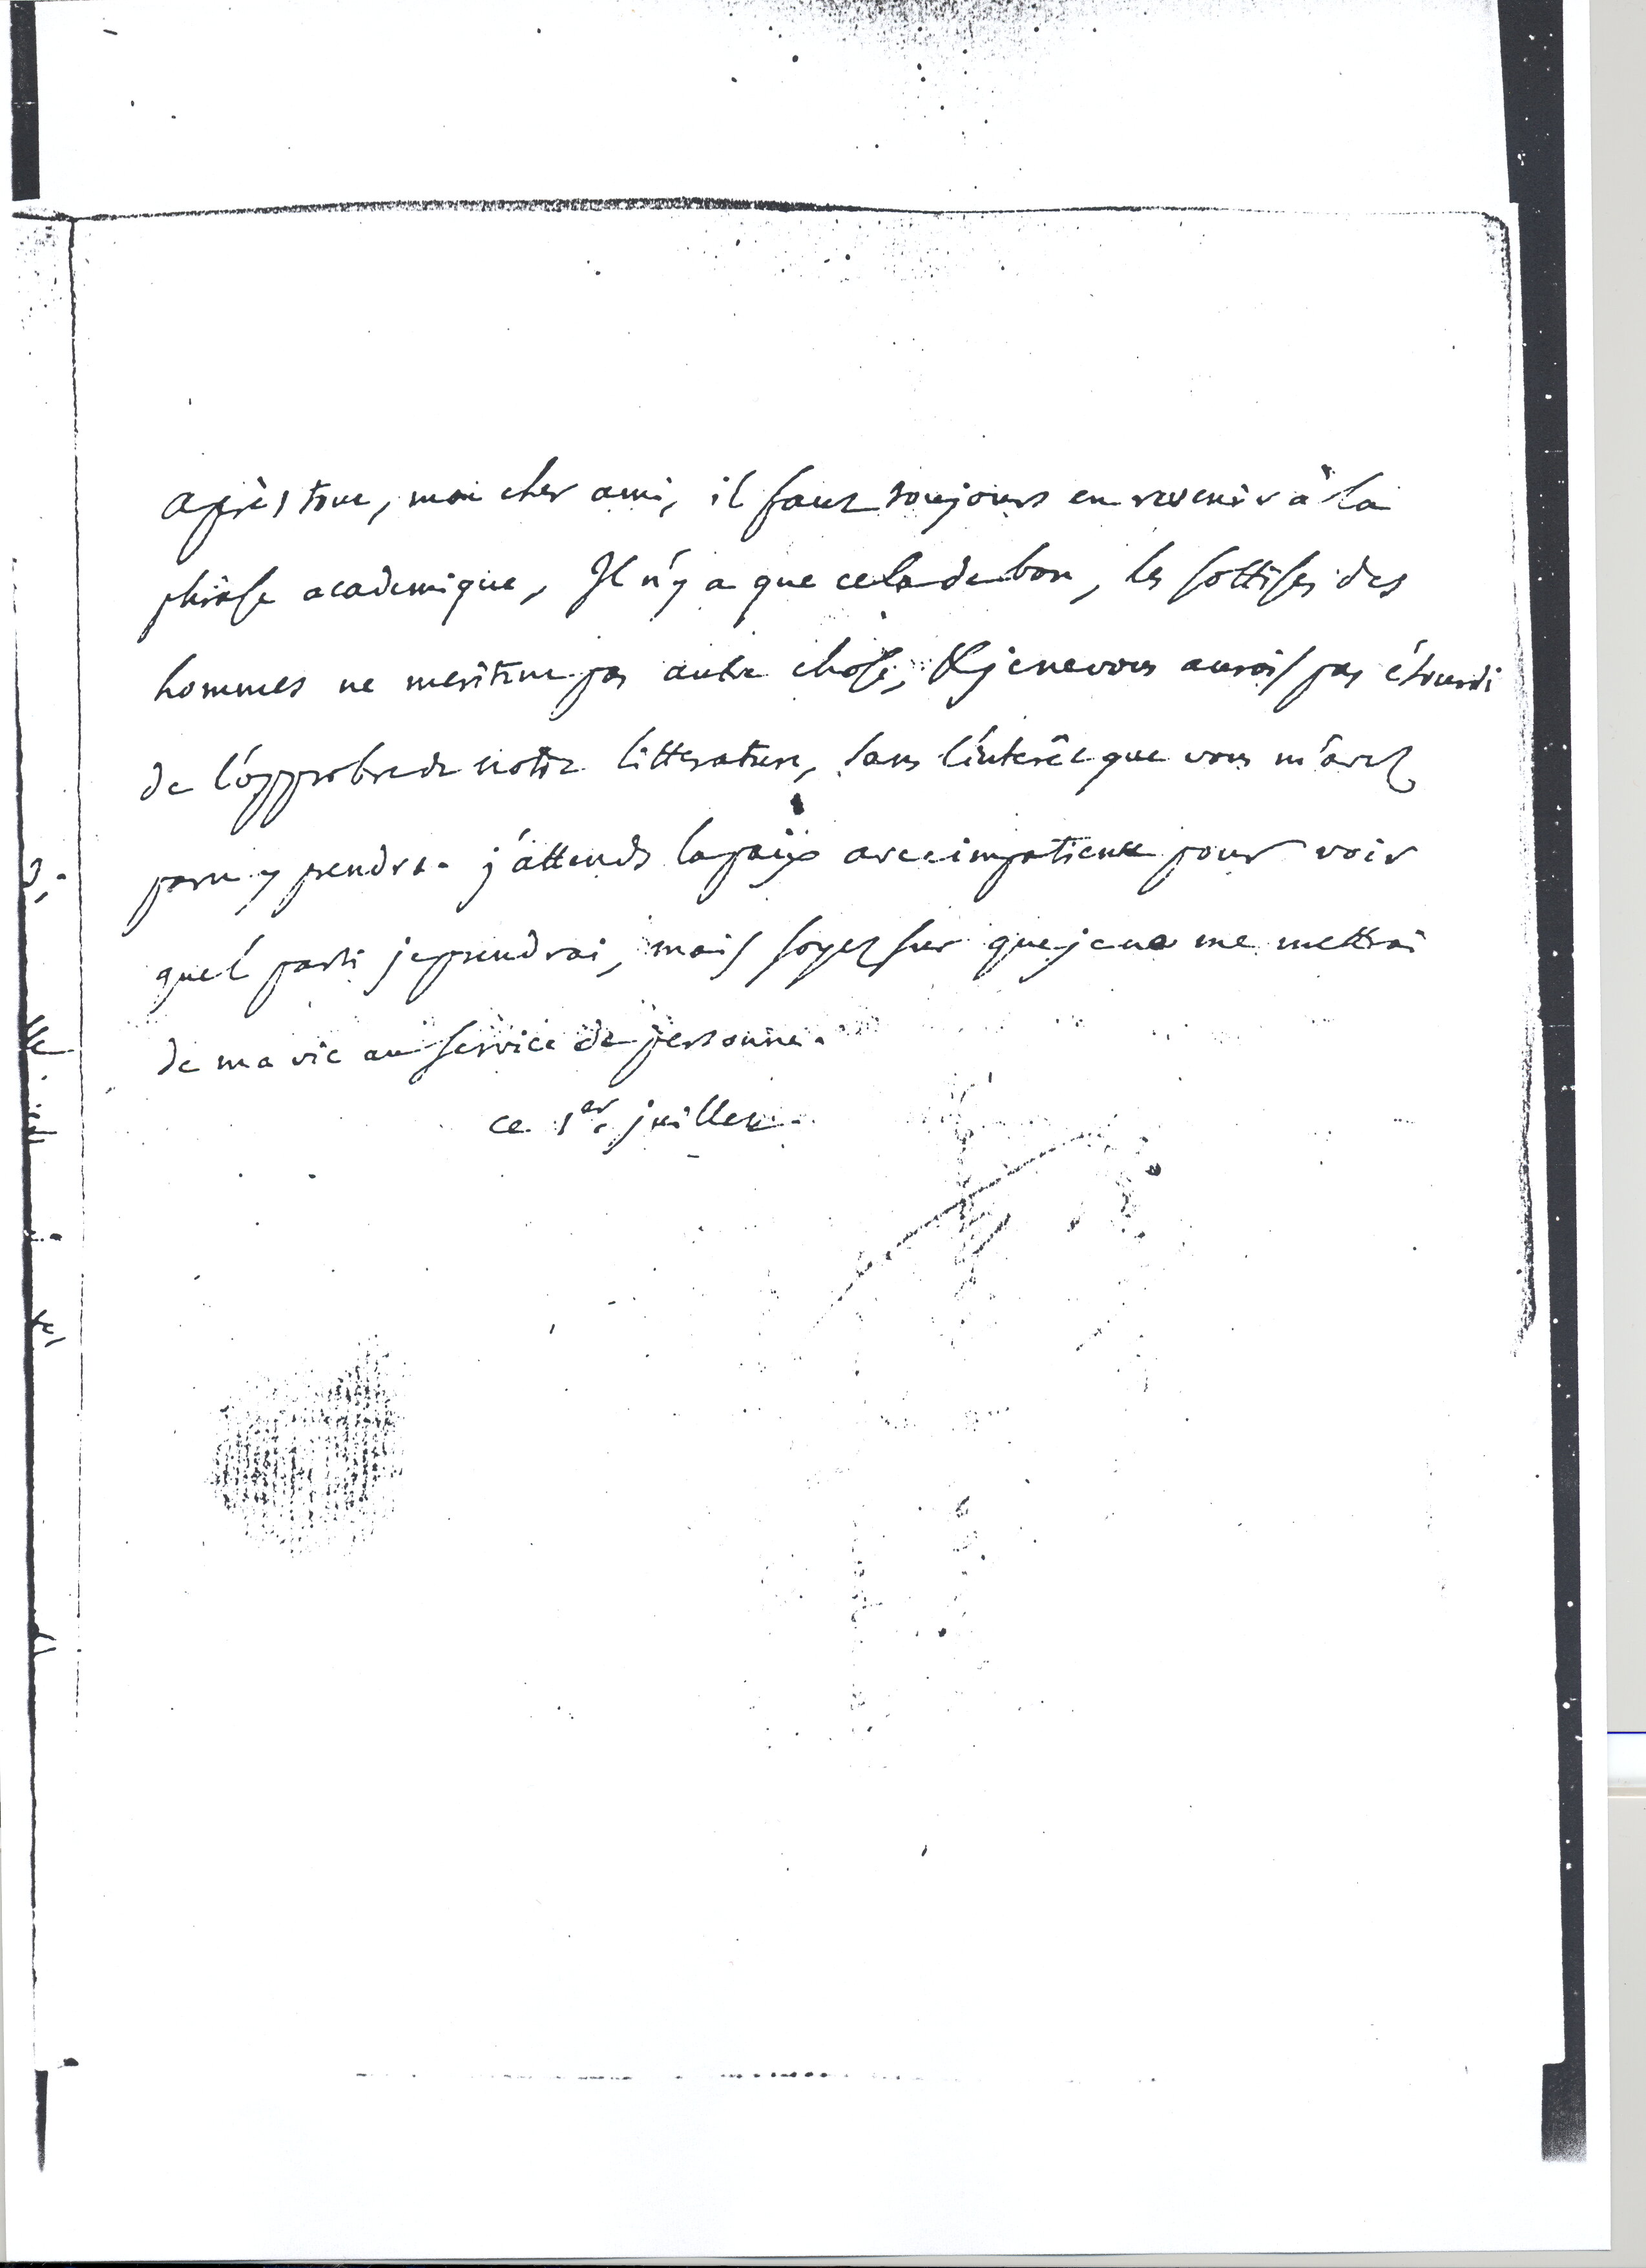 après tout, mon cher ami, il faut toujours en revenir à la
phrase academique, Il n'y a que cela de bon, les sottises des
hommes ne meritent pas autre chose, & je ne vous aurois pas étourdi
de l'opprobre de notre litterature, sans l'interêt que vous m'avez
paru y prendre. j'attends la paix avec impatience pour voir
quel parti je prendrai, mais soyez sur que je ne me mettrai
de ma vie au service de personne.
ce 1er. juillet.